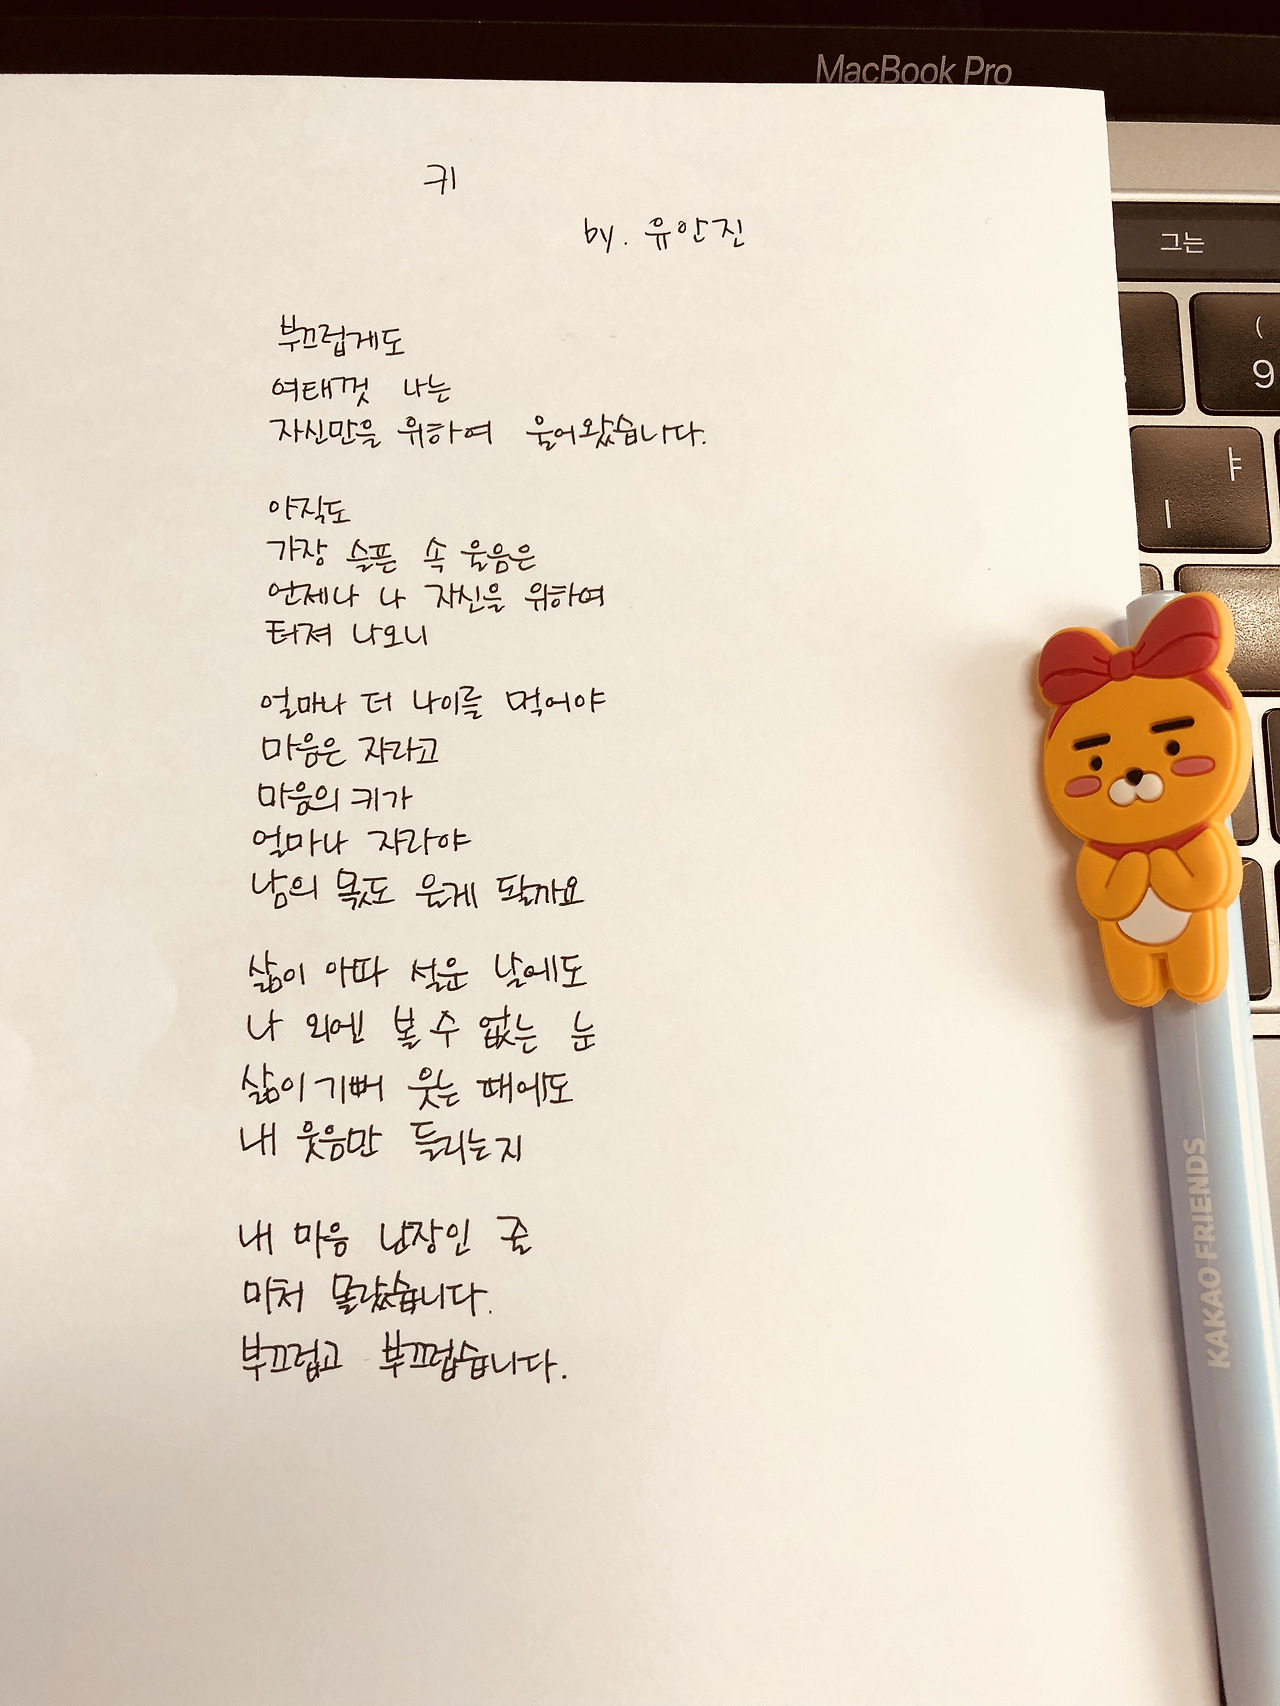 MacBook Pro
키
by. 유안진
그는
부끄럽게도
여태껏 나는
자신만을 위하여 울어왔습니다.
아직도
가장 슬픈 속 울음은
언제나 나 자신을 위하여
터져 나오니
얼마나 더 나이를 먹어야
마음은 자라고
마음의 키가
얼마나 자라야
남의 몫도 울게 될까요
삶이 아파 설운 날에도
나 외엔 볼 수 없는 눈
삶이 기뻐 웃는 때에도
내 웃음만 들리는지
내 마음 난장인 줄
미처 몰랐습니다.
부끄럽고 부끄럽습니다.
(
9
ㅑ
I
KAKAO FRIENDS